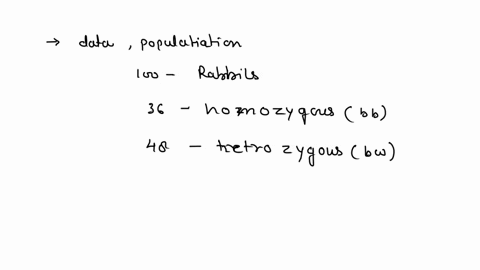 → data, populatiation
100 - Rabbils
36 - homozygous (bb)
48 - hetrozygous (bw)